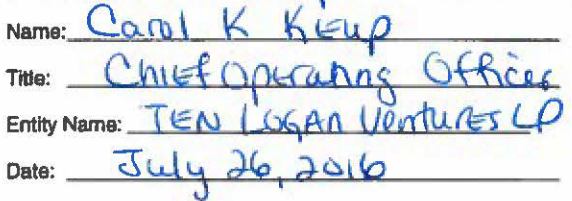 Name: Carol K Kieup
Title: Chief Operating Officer
Entity Name: TEN LOGAN Ventures LP
Date: July 26, 2016